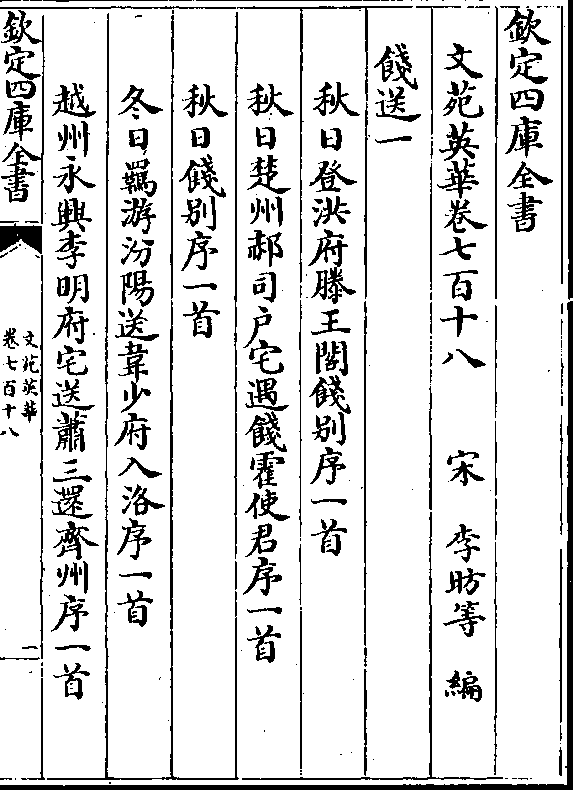 欽定四庫全書
文苑英華卷七百十八　宋　李昉等　編
餞送一
秋日登洪府滕王閣餞别序一首
秋日楚州郝司户宅遇餞霍使君序一首
秋日餞别序一首
冬日羈游汾陽送韋少府入洛序一首
越州永興李明府宅送蕭三還齊州序一首
欽定四庫全書
文苑英華
卷七百十八
一